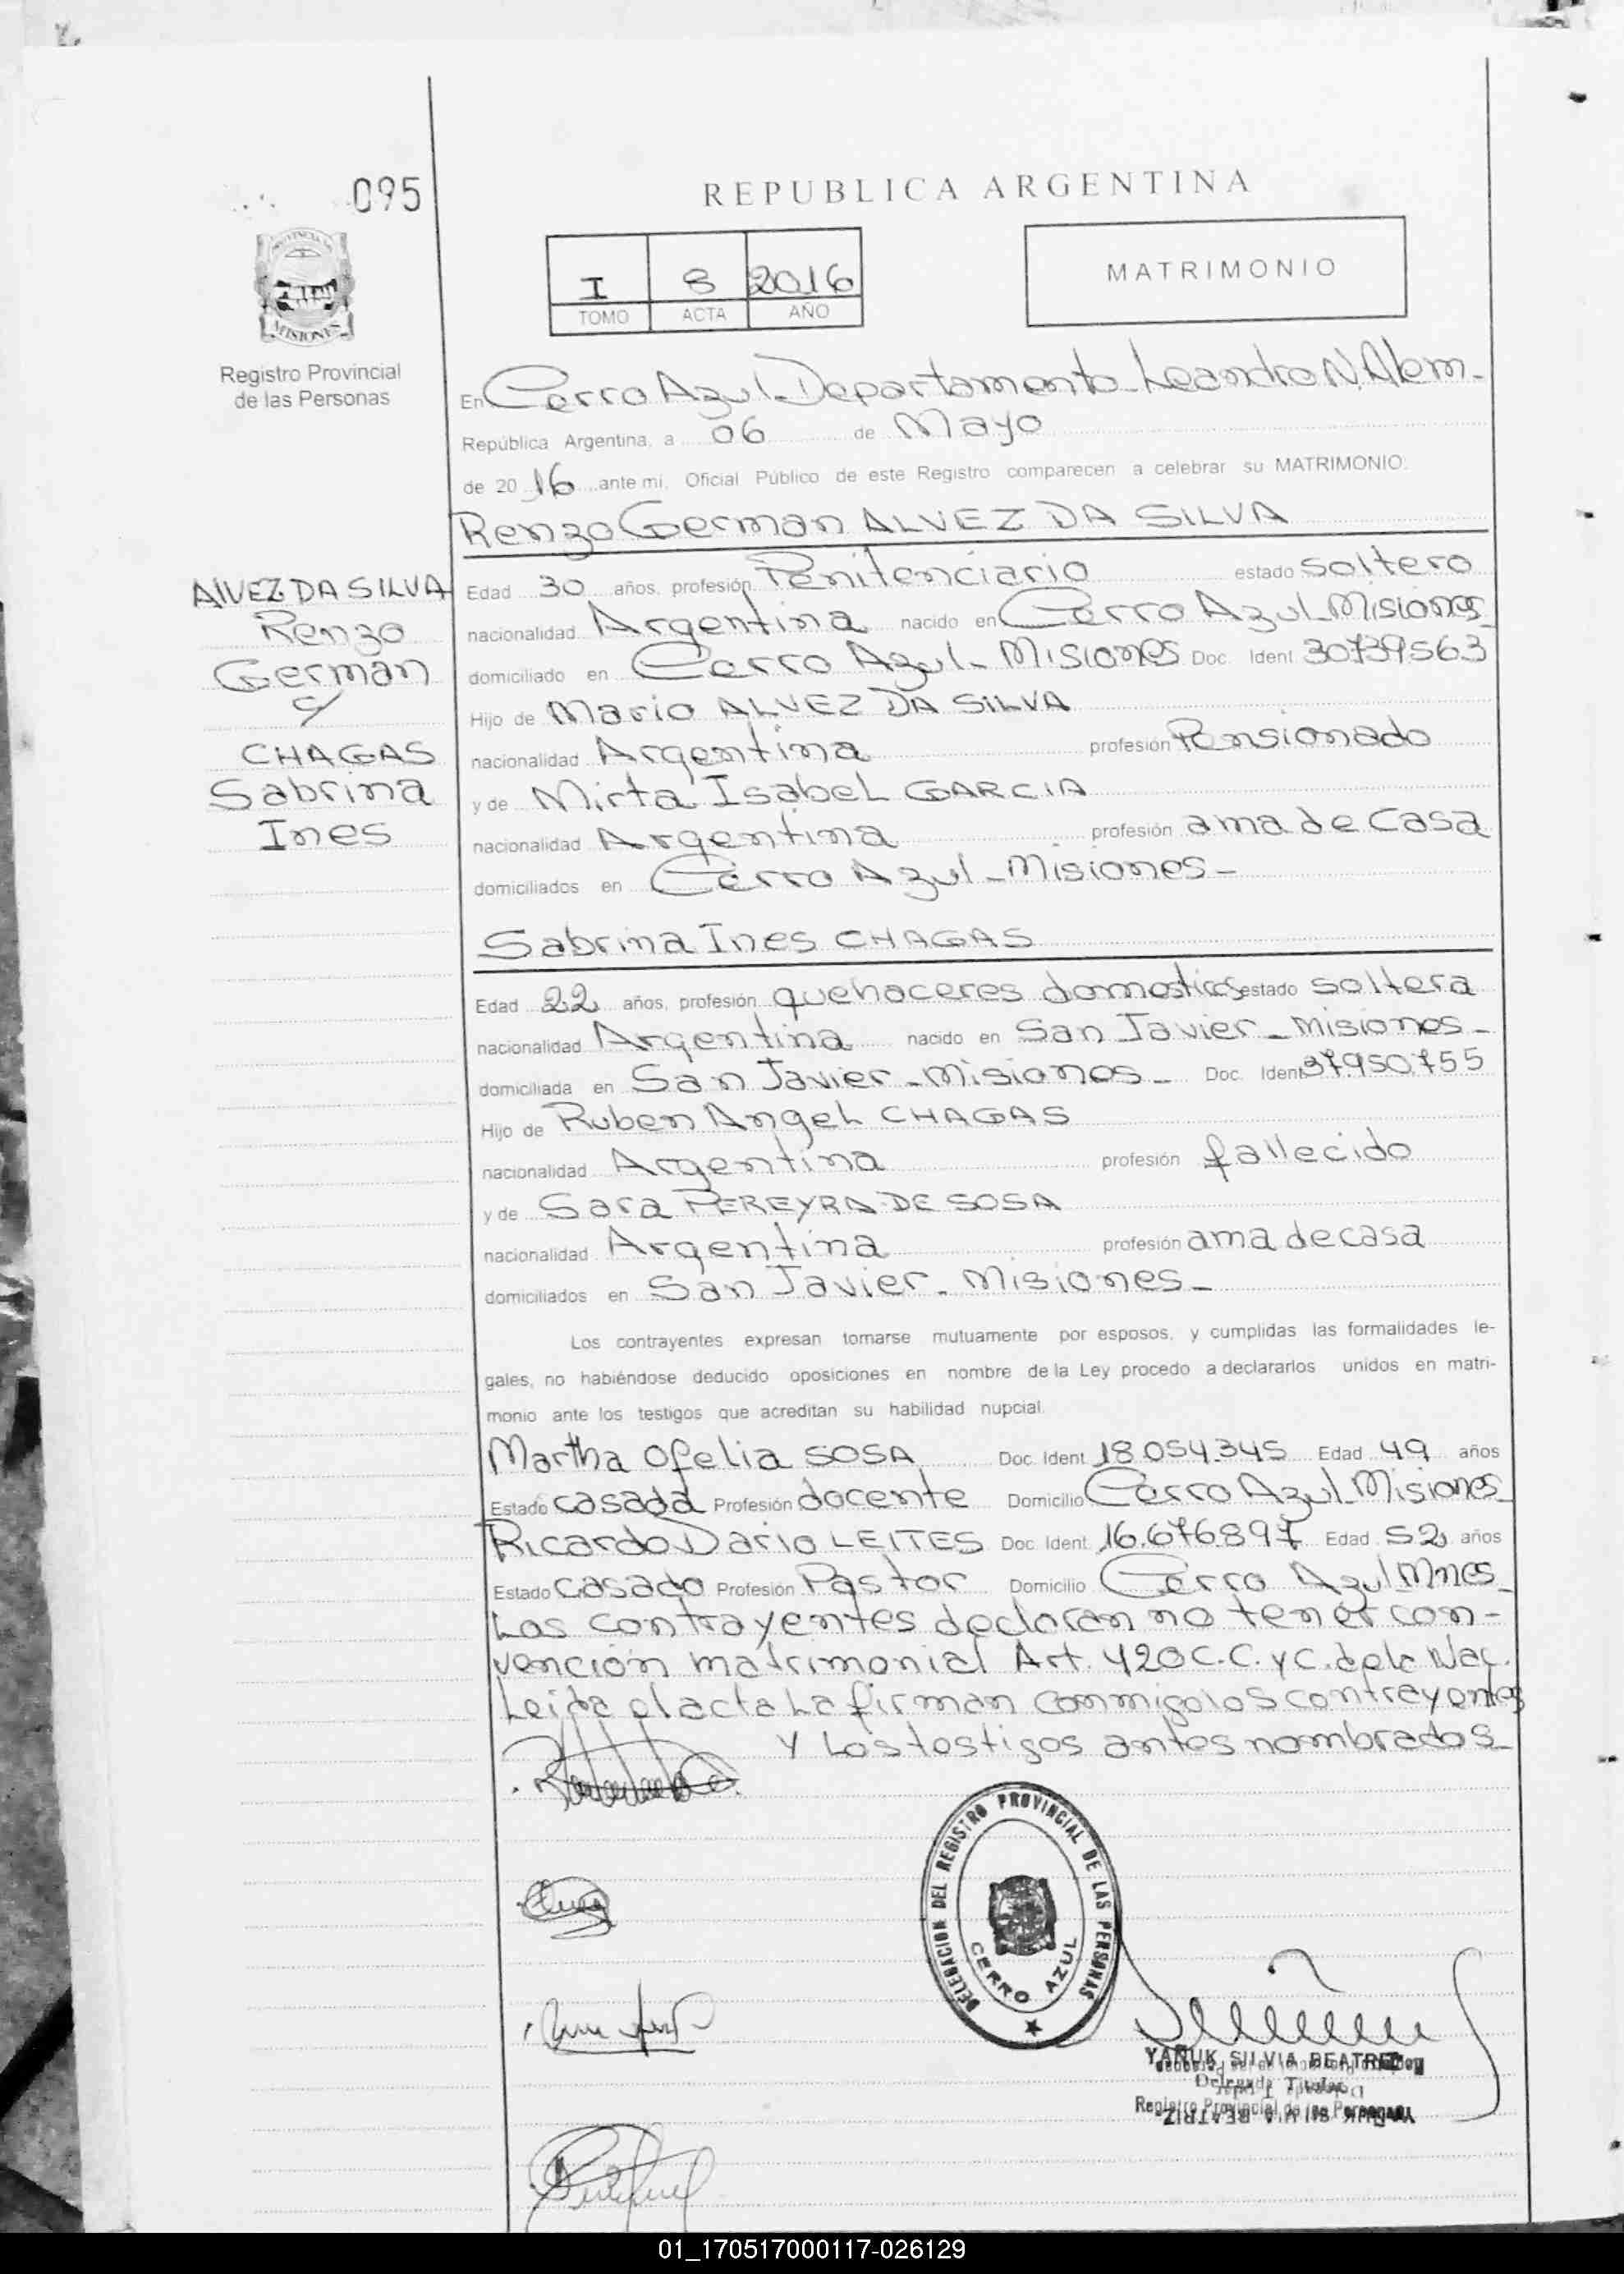 095
REPUBLICA ARGENTINA
PROVINCIA DE
MISIONES
Registro Provincial
de las Personas
I 8 2016
TOMO ACTA AÑO
MATRIMONIO
En Cerro Azul - Departamento Leandro N. Alem -
República Argentina, a 06 de Mayo
de 2016 ante mi, Oficial Público de este Registro comparecen a celebrar su MATRIMONIO:
Renzo German ALVEZ DA SILVA
ALVEZ DA SILVA
Renzo
German
c/
CHAGAS
Sabrina
Ines
Edad 30 años, profesión Penitenciario estado soltero
nacionalidad Argentina nacido en Cerro Azul - Misiones -
domiciliado en Cerro Azul - Misiones Doc. Ident 30739563
Hijo de Mario ALVEZ DA SILVA
nacionalidad Argentina profesión Pensionado
y de Mirta Isabel GARCIA
nacionalidad Argentina profesión ama de casa
domiciliados en Cerro Azul - Misiones -
Sabrina Ines CHAGAS
Edad 22 años, profesión quehaceres domesticos estado soltera
nacionalidad Argentina nacido en San Javier - Misiones -
domiciliada en San Javier - Misiones - Doc. Ident 37950755
Hijo de Ruben Angel CHAGAS
nacionalidad Argentina profesión fallecido
y de Sara PEREYRA DE SOSA
nacionalidad Argentina profesión ama de casa
domiciliados en San Javier - Misiones -
Los contrayentes expresan tomarse mutuamente por esposos, y cumplidas las formalidades le-
gales, no habiéndose deducido oposiciones en nombre de la Ley procedo a declararlos unidos en matri-
monio ante los testigos que acreditan su habilidad nupcial.
Martha Ofelia SOSA Doc. Ident 18.054.345 Edad 49 años
Estado casada Profesión docente Domicilio Cerro Azul - Misiones
Ricardo Dario LEITES Doc. Ident 16.676.897 Edad 52 años
Estado casado Profesión Pastor Domicilio Cerro Azul Mnes -
Los contrayentes declaran no tener con-
vención matrimonial Art. 420 C.C. y C. de la Nac.
Leida el acta la firman conmigo los contrayentes
y los testigos antes nombrados -
DELEGACION DEL REGISTRO PROVINCIAL DE LAS PERSONAS
CERRO AZUL
YANUK SILVIA BEATRIZ
Delegada Titular
Registro Provincial de las Personas
01_170517000117-026129